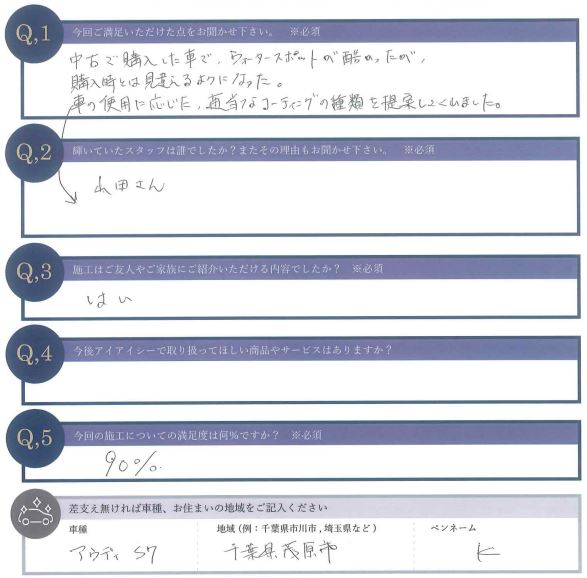 Q,1 今回ご満足いただけた点をお聞かせ下さい。 ※必須
中古で購入した車で、ウォータースポットが酷かったが、
購入時とは見違えるようになった。
車の使用に応じた、適当なコーティングの種類を提案してくれました。
Q,2 輝いていたスタッフは誰でしたか？またその理由もお聞かせ下さい。 ※必須
山田さん
Q,3 施工はご友人やご家族にご紹介いただける内容でしたか？ ※必須
はい
Q,4 今後アイアイシーで取り扱ってほしい商品やサービスはありますか？
Q,5 今回の施工についての満足度は何%ですか？ ※必須
90%
差支え無ければ車種、お住まいの地域をご記入ください
車種 地域（例：千葉県市川市，埼玉県など） ペンネーム
アウディ S7 千葉県茂原市 K